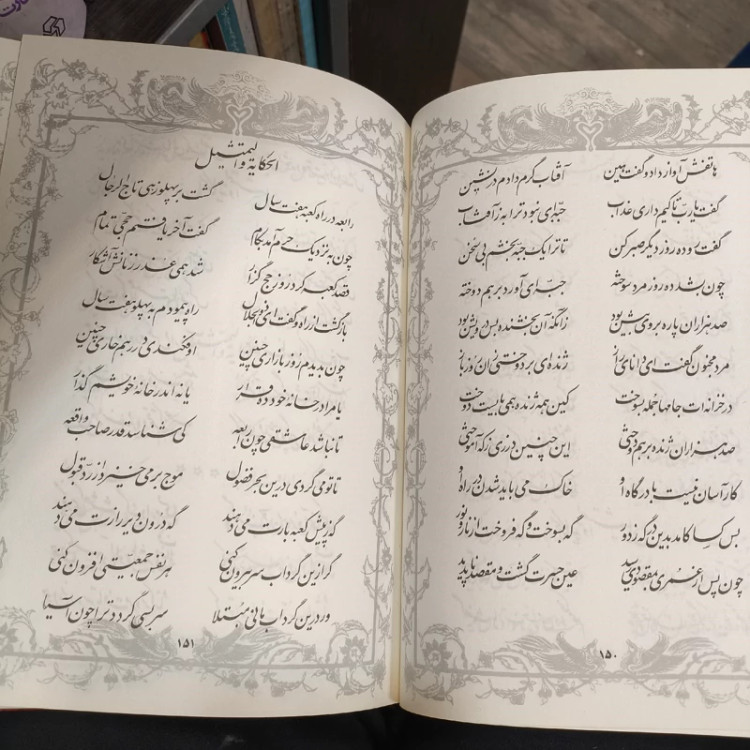 هاتفش آواز داد و گفت هین آفتاب گرم دادم در نشین
گفت یارب تا کیم داری عذاب جبه‌ای نبود ترا به ز آفتاب
گفت رو ده روز دیگر صبر کن تا ترا یک جبه بخشم بی سخن
چون بشد ده روز مرد سوخته جبه‌ای آورد بر هم دوخته
صد هزاران پاره بر وی بیش بود زانکه آن بخشنده بس درویش بود
مرد مجنون گفت ای دانای راز ژنده‌ای بر دوختی زان روز باز
در خزانه‌ات جامها جمله بسوخت کین همه ژنده همی بایست دوخت
صد هزاران ژنده بر هم دوختی این چنین درزی ز که آموختی
کار آسان نیست با درگاه او خاک می باید شدن در راه او
بس کسا کامد بدین درگه ز دور گه بسوخت و گه فروخت از نار و نور
چون پس از عمری بمقصودی رسید عین حسرت گشت و مقصد ناپدید
۱۵۰
الحکایة و التمثیل
رابعه در راه کعبه هفت سال گشت بر پهلو زهی تاج الرجال
چون به نزدیک حرم آمد بکام گفت آخر یافتم حجی تمام
قصد کعبه کرد روز حج گزار شد همی عذر زنانش آشکار
بازگشت از راه و گفت ای ذوالجلال راه پیمودم به پهلو هفت سال
چون بدیدم روز بازاری چنین او فکندی در رهم خاری چنین
یا مرا در خانه خود ده قرار یا نه اندر خانه خویشم گذار
تا نباشد عاشقی چون رابعه کی شناسد قدر صاحب واقعه
تا تو می گردی درین بحر فضول موج بر می خیزد از رد و قبول
گه ز پیش کعبه بارت می دهند گه درون دیر رازت می دهند
گر ازین گرداب سر بیرون کنی هر نفس جمعیتی افزون کنی
ور درین گرداب مانی مبتلا سر بسی گردد ترا چون آسیا
۱۵۱